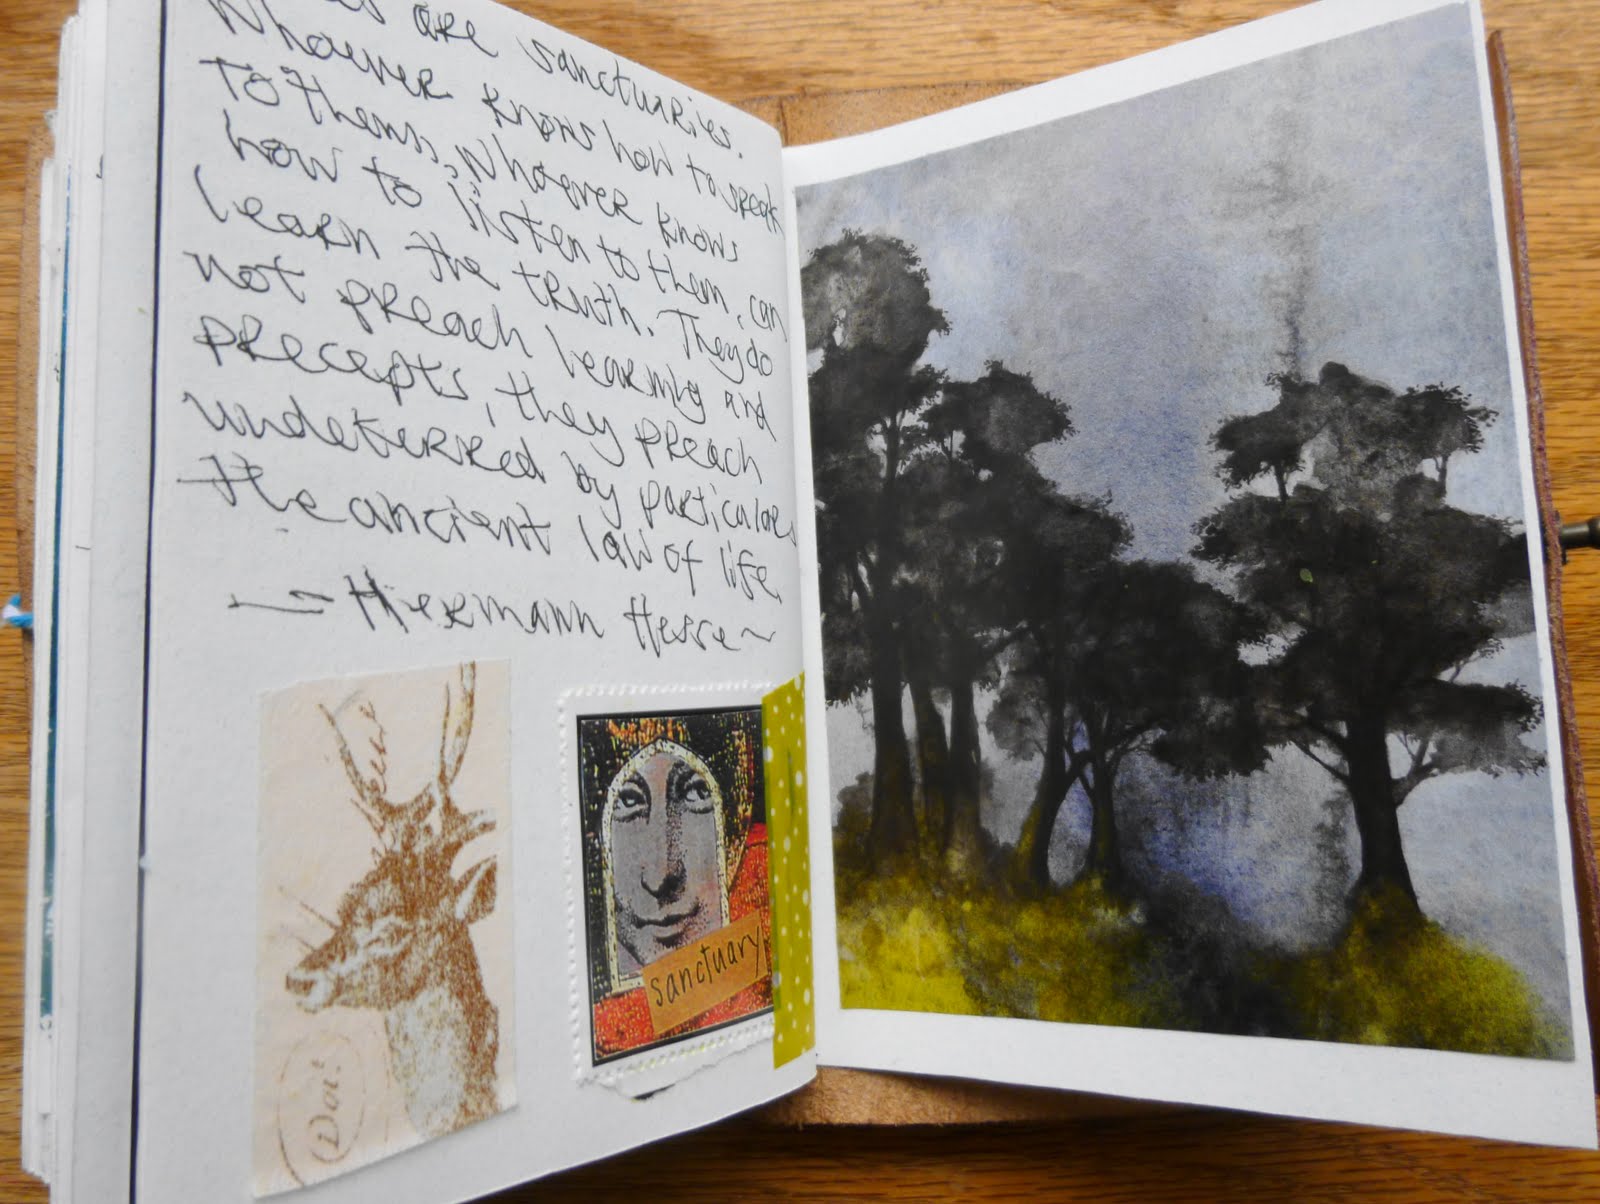 es are sanctuaries.
Whoever knows how to speak
To them, whoever knows
how to listen to them, can
learn the truth. They do
not preach learning and
precepts, they preach
undeterred by particulars
the ancient law of life
— Hermann Hesse ~
sanctuary